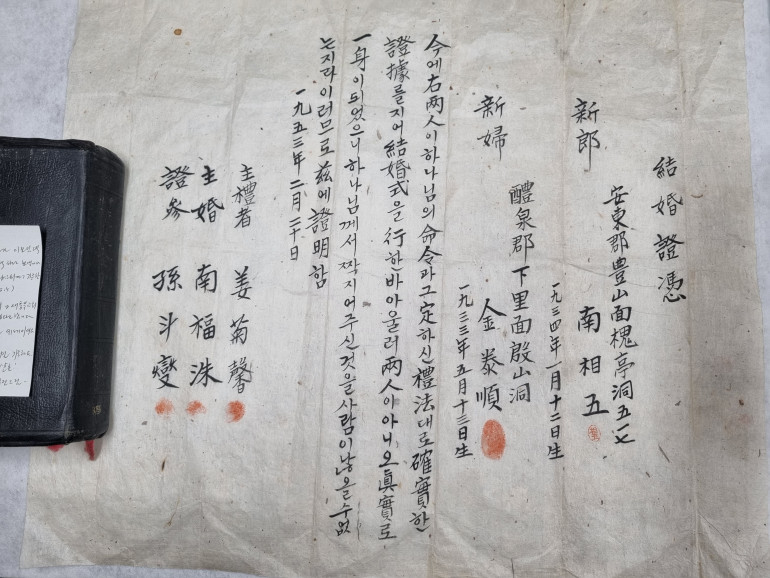 結婚證憑
安東郡豊山面槐亭洞五一七
新郎 南相五
一九三四年一月十二日生
醴泉郡下里面殷山洞
新婦 金泰順
一九三三年五月十三日生
今에右兩人이하나님의命令과그定하신禮法대로確實한
證據를지어結婚式을行한바아울러兩人이아니오眞實로
一身이되었으니하나님께서짝지어주신것을사람이낳을수없
는지라이러므로玆에證明함
一九五三年二月二十日
主禮者 姜菊馨
主婚 南福洙
證參 孫斗燮